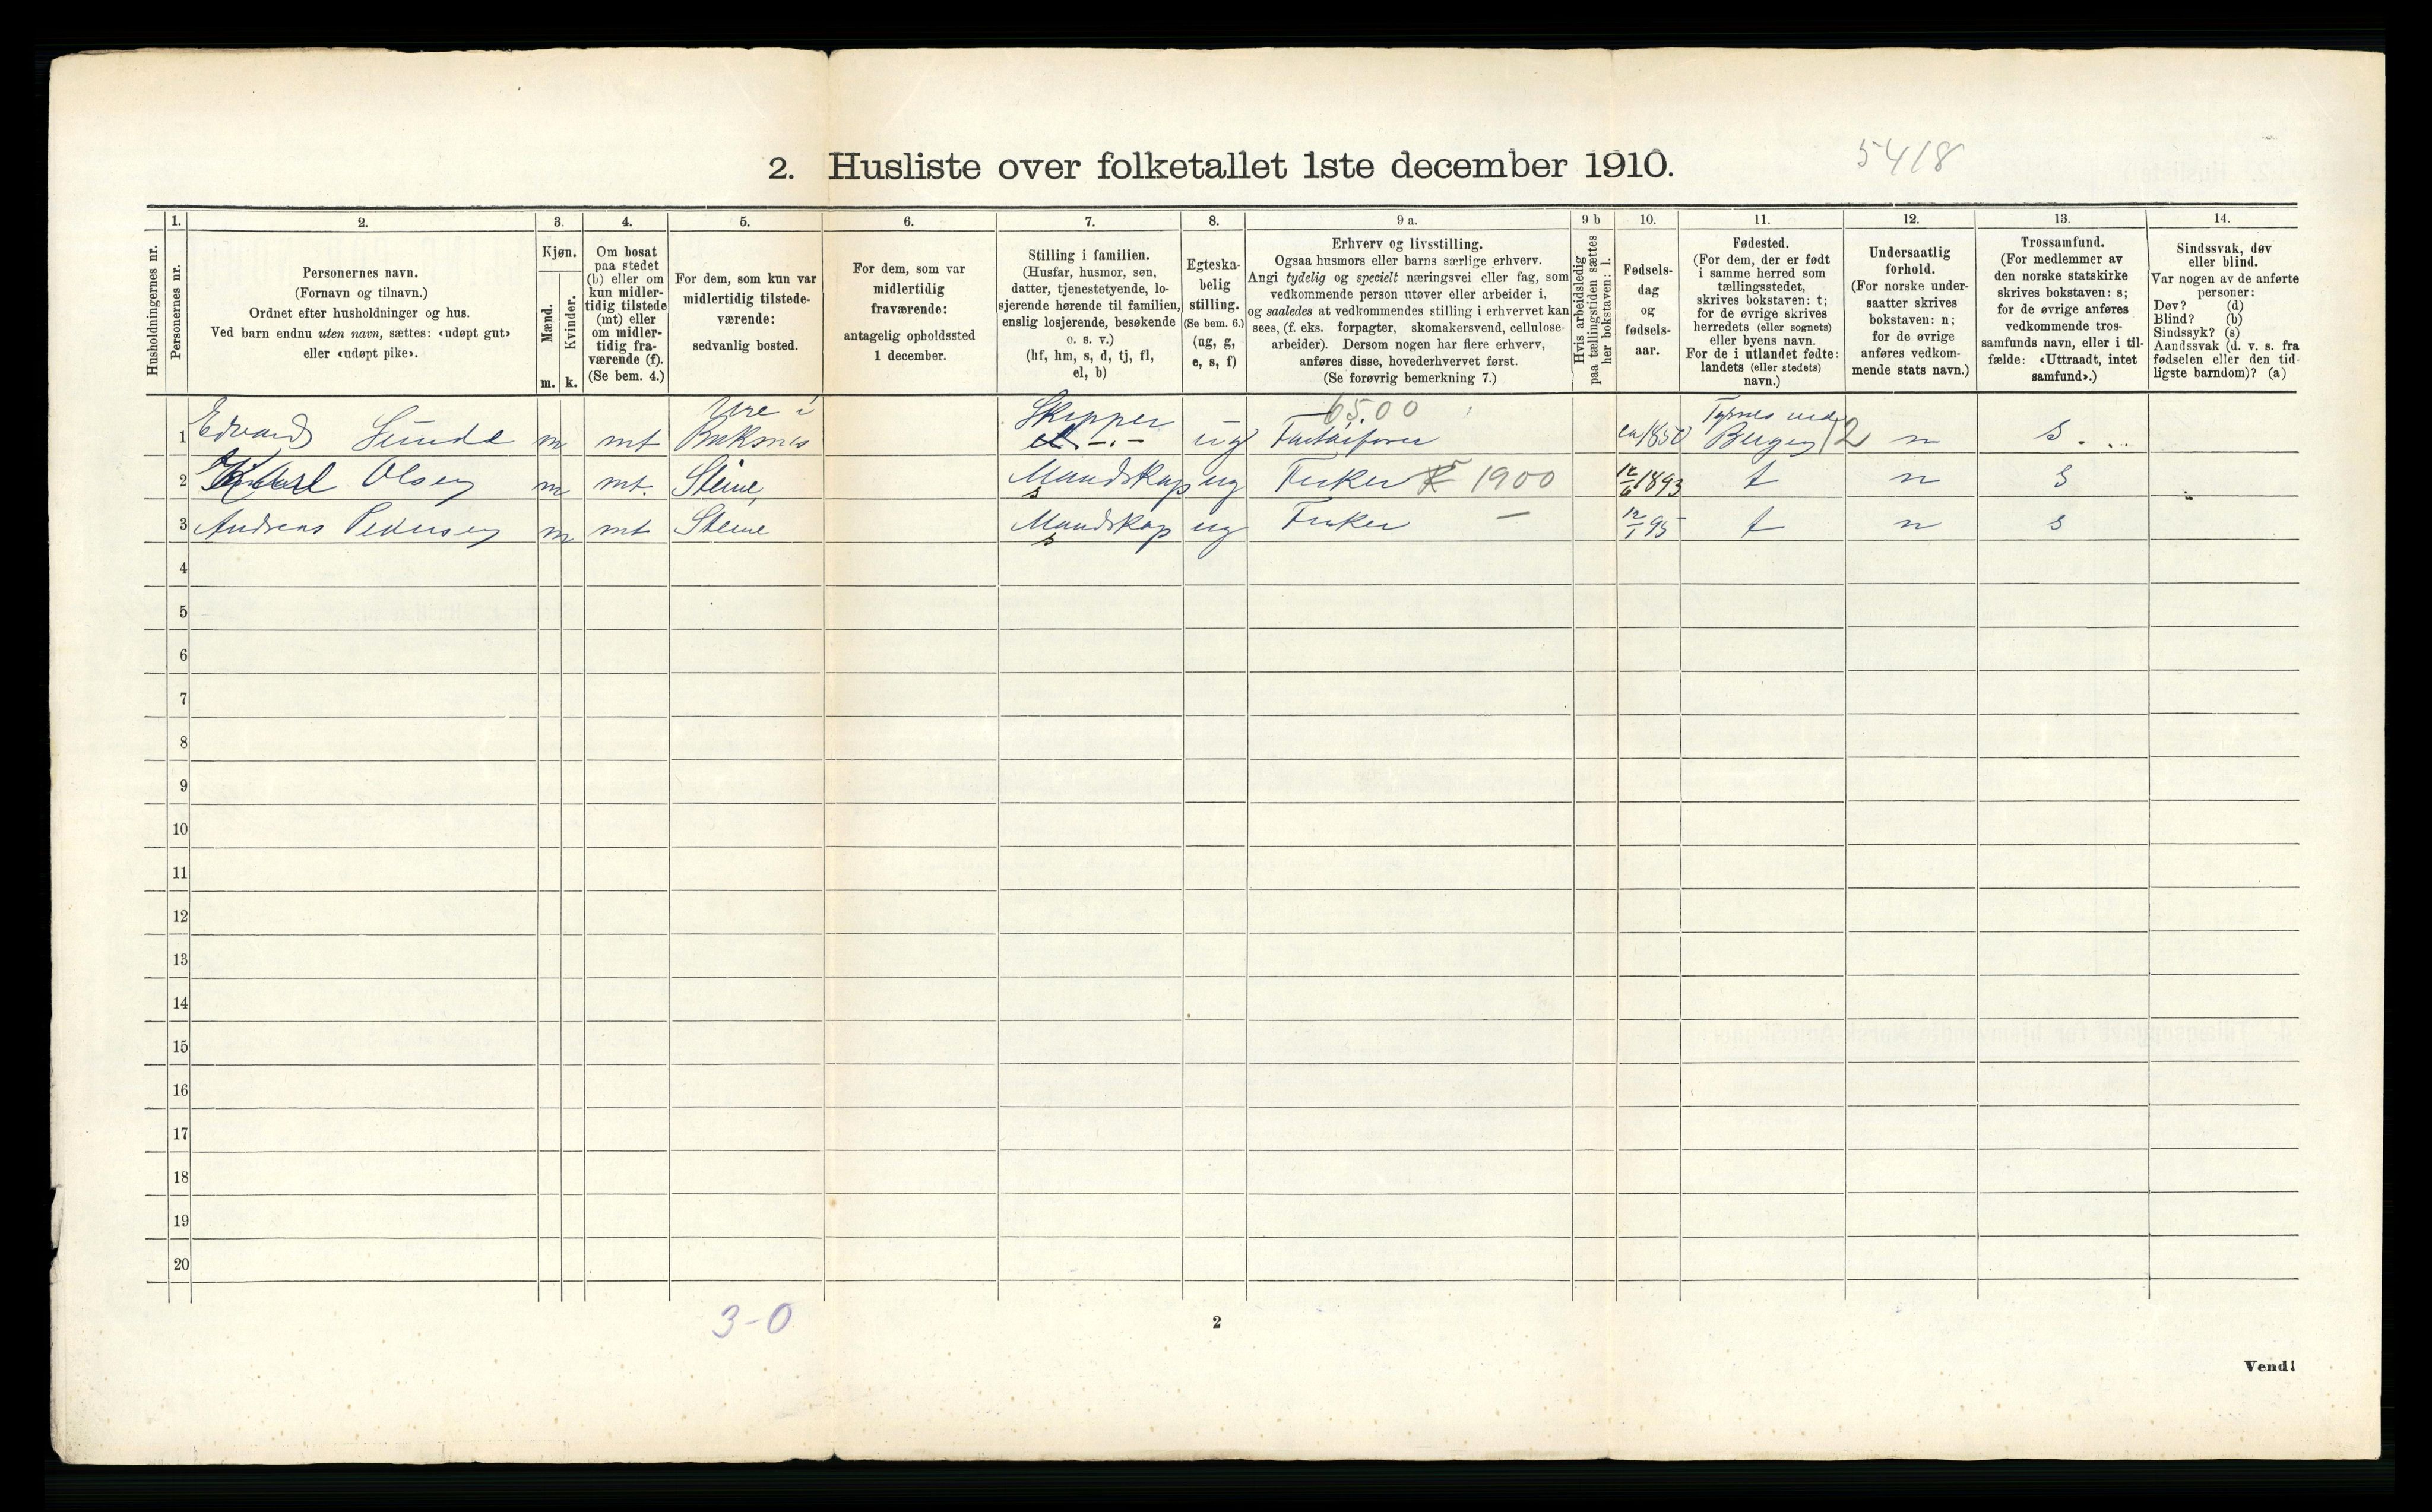 2. Husliste over folketallet 1ste december 1910.
5418
Husholdningernes nr.
1.
Personernes nr.
2.
Personernes navn.
(Fornavn og tilnavn.)
Ordnet efter husholdninger og hus.
Ved barn endnu uten navn, sættes: «udøpt gut»
eller «udøpt pike».
3.
Kjøn.
Mænd.
Kvinder.
m. k.
4.
Om bosat
paa stedet
(b) eller om
kun midler-
tidig tilstede
(mt) eller
om midler-
tidig fra-
værende (f).
(Se bem. 4.)
5.
For dem, som kun var
midlertidig tilstede-
værende:
sedvanlig bosted.
6.
For dem, som var
midlertidig
fraværende:
antagelig opholdssted
1 december.
7.
Stilling i familien.
(Husfar, husmor, søn,
datter, tjenestetyende, lo-
sjerende hørende til familien,
enslig losjerende, besøkende
o. s. v.)
(hf, hm, s, d, tj, fl,
el, b)
8.
Egteska-
belig
stilling.
(Se bem. 6.)
(ug, g,
e, s, f)
9 a.
Erhverv og livsstilling.
Ogsaa husmors eller barns særlige erhverv.
Angi tydelig og specielt næringsvei eller fag, som
vedkommende person utøver eller arbeider i,
og saaledes at vedkommendes stilling i erhvervet kan
sees, (f. eks. forpagter, skomakersvend, cellulose-
arbeider). Dersom nogen har flere erhverv,
anføres disse, hovederhvervet først.
(Se forøvrig bemerkning 7.)
9 b
Hvis arbeidsledig
paa tællingstiden sættes
her bokstaven: l.
10.
Fødsels-
dag
og
fødsels-
aar.
11.
Fødested.
(For dem, der er født
i samme herred som
tællingsstedet,
skrives bokstaven: t;
for de øvrige skrives
herredets (eller sognets)
eller byens navn.
For de i utlandet fødte:
landets (eller stedets)
navn.)
12.
Undersaatlig
forhold.
(For norske under-
saatter skrives
bokstaven: n;
for de øvrige
anføres vedkom-
mende stats navn.)
13.
Trossamfund.
(For medlemmer av
den norske statskirke
skrives bokstaven: s;
for de øvrige anføres
vedkommende tros-
samfunds navn, eller i til-
fælde: «Uttraadt, intet
samfund».)
14.
Sindssvak, døv
eller blind.
Var nogen av de anførte
personer:
Døv? (d)
Blind? (b)
Sindssyk? (s)
Aandssvak (d. v. s. fra
fødselen eller den tid-
ligste barndom)? (a)
Ure i Skipper 6500 Tysnes ved
1 Edvard Sunde m mt Buksnes ug Fartøifører ca 1850 Bergen 12 n s.
2 Karl Olsen m mt. Steine, Mandskap s ug Fisker 1900 12/6 1893 t n s
3 Andreas Pedersen m mt Steine Mandskap s ug Fisker — 12/1 95 t n s
4
5
6
7
8
9
10
11
12
13
14
15
16
17
18
19
20
3-0
2
Vend!